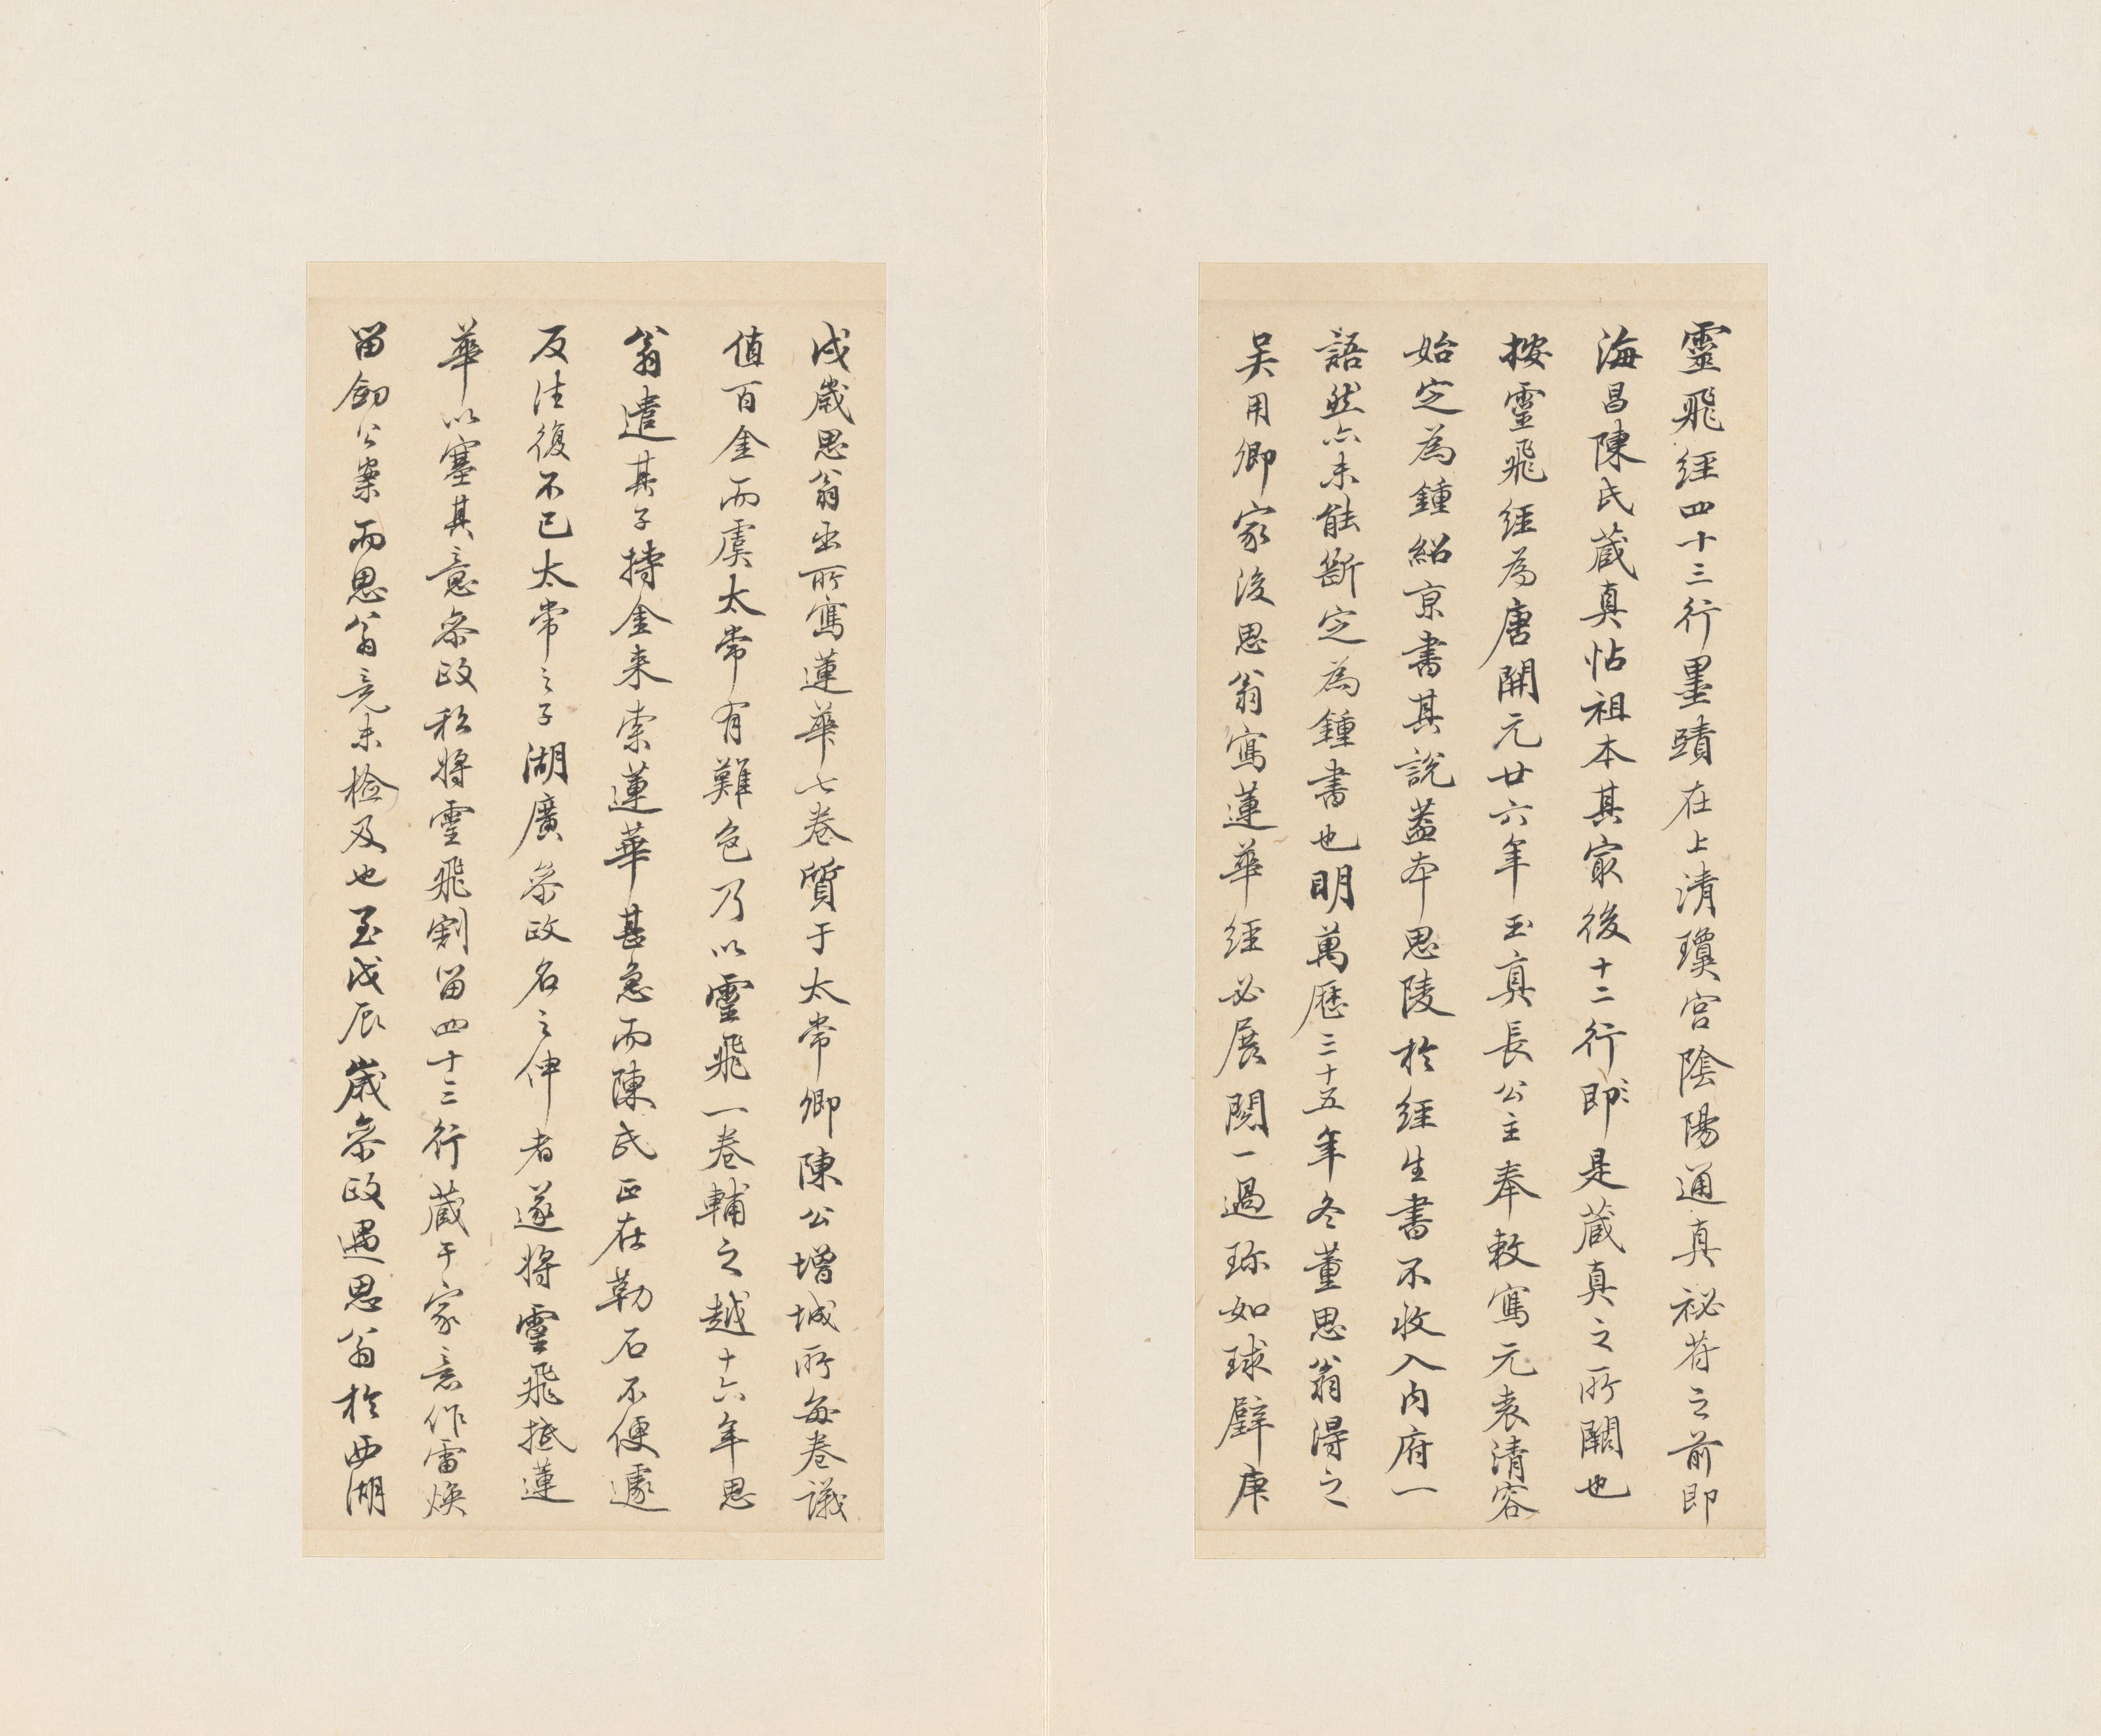 靈飛經四十三行墨蹟在上清瓊宮陰陽通真祕符之前即
海昌陳氏蔵真帖祖本其冣後十二行即是蔵真之所闕也
按靈飛經為唐開元廿六年玉真長公主奉敕寫元袁清容
始定為鍾紹京書其說葢本思陵於經生書不收入内府一
語然亦未能斷定為鍾書也明萬厯三十五年冬董思翁得之
吴用卿家後思翁寫蓮華經必展閱一過珎如球璧庚
戌歲思翁出所寫蓮華七卷質于太常卿陳公增城所每卷議
值百金而虞太常有難色乃以靈飛一卷輔之越十六年思
翁遣其子持金来索蓮華甚急而陳氏正在勒石不便遽
反往復不已太常之子湖廣叅政名之伸者遂將靈飛抵蓮
華以塞其意叅政私將靈飛割留四十三行蔵于家意作雷煥
留劒公案而思翁竟未檢及也至戊辰歲叅政遇思翁於西湖